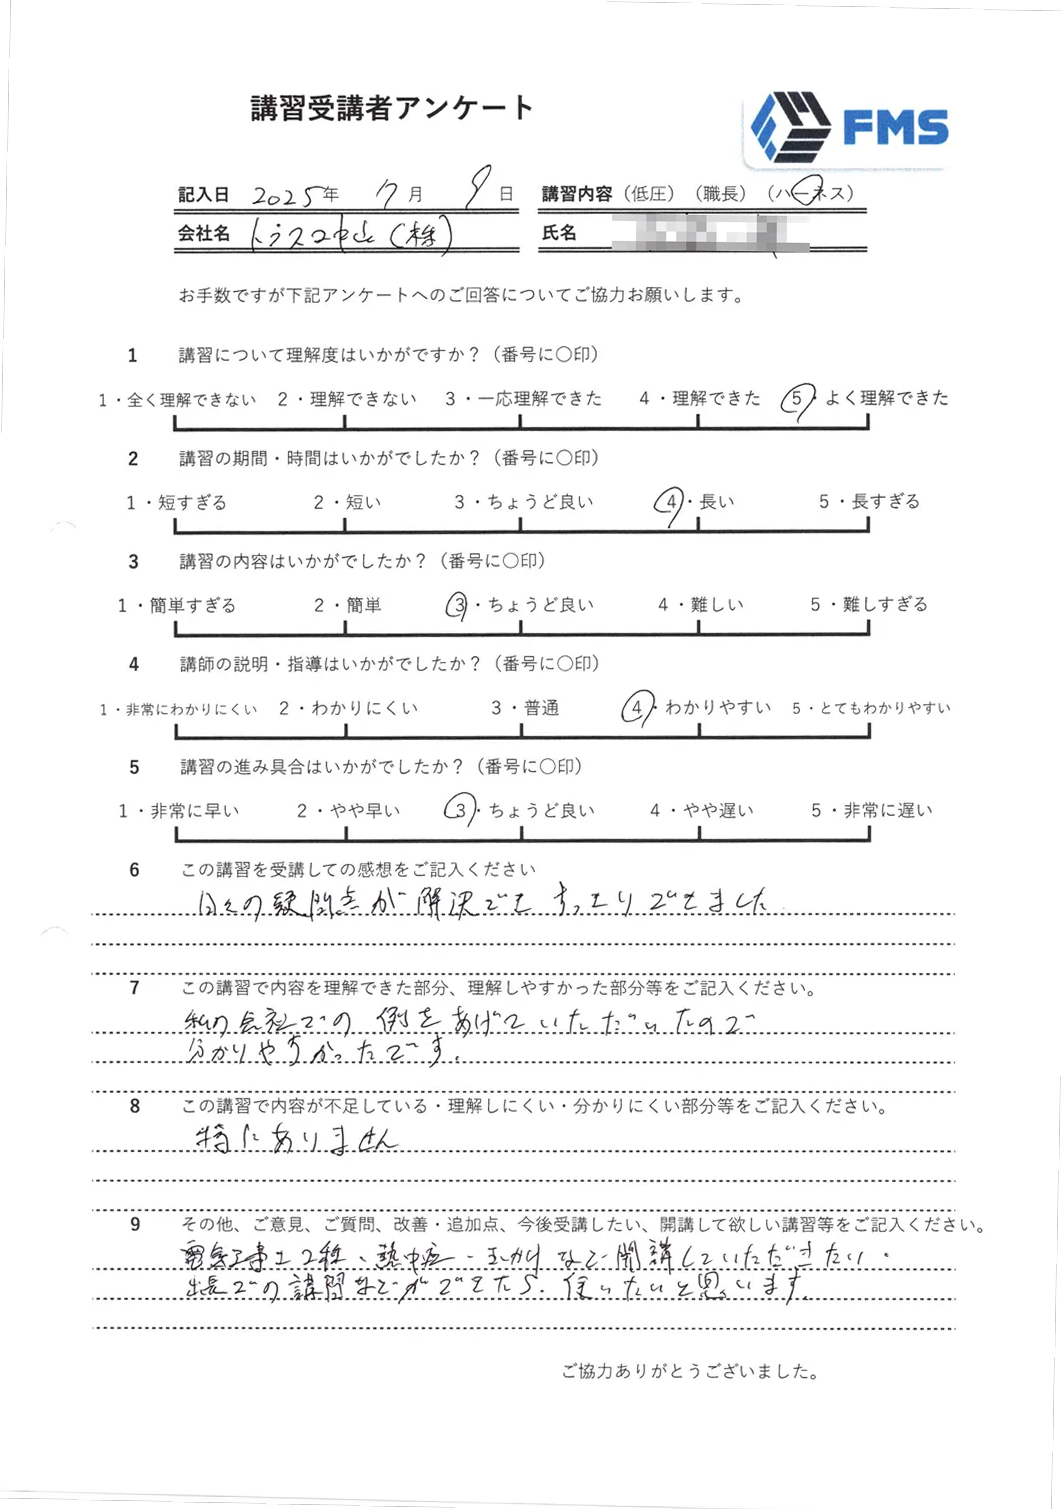 講習受講者アンケート
FMS
記入日 2025年 7月 9日 講習内容（低圧）（職長）（ハーネス）
会社名 トラスコ中山（株） 氏名
お手数ですが下記アンケートへのご回答についてご協力お願いします。
1 講習について理解度はいかがですか？（番号に〇印）
1・全く理解できない 2・理解できない 3・一応理解できた 4・理解できた 5・よく理解できた
2 講習の期間・時間はいかがでしたか？（番号に〇印）
1・短すぎる 2・短い 3・ちょうど良い 4・長い 5・長すぎる
3 講習の内容はいかがでしたか？（番号に〇印）
1・簡単すぎる 2・簡単 3・ちょうど良い 4・難しい 5・難しすぎる
4 講師の説明・指導はいかがでしたか？（番号に〇印）
1・非常にわかりにくい 2・わかりにくい 3・普通 4・わかりやすい 5・とてもわかりやすい
5 講習の進み具合はいかがでしたか？（番号に〇印）
1・非常に早い 2・やや早い 3・ちょうど良い 4・やや遅い 5・非常に遅い
6 この講習を受講しての感想をご記入ください
日々の疑問点が解決でき すっきりできました
7 この講習で内容を理解できた部分、理解しやすかった部分等をご記入ください。
私の会社での例をあげていただいたので
分かりやすかったです。
8 この講習で内容が不足している・理解しにくい・分かりにくい部分等をご記入ください。
特にありません
9 その他、ご意見、ご質問、改善・追加点、今後受講したい、開講して欲しい講習等をご記入ください。
電気工事士2種、熱中症、玉かけなど開講していただきたい。
出長での講習などができたら、使いたいと思います。
ご協力ありがとうございました。